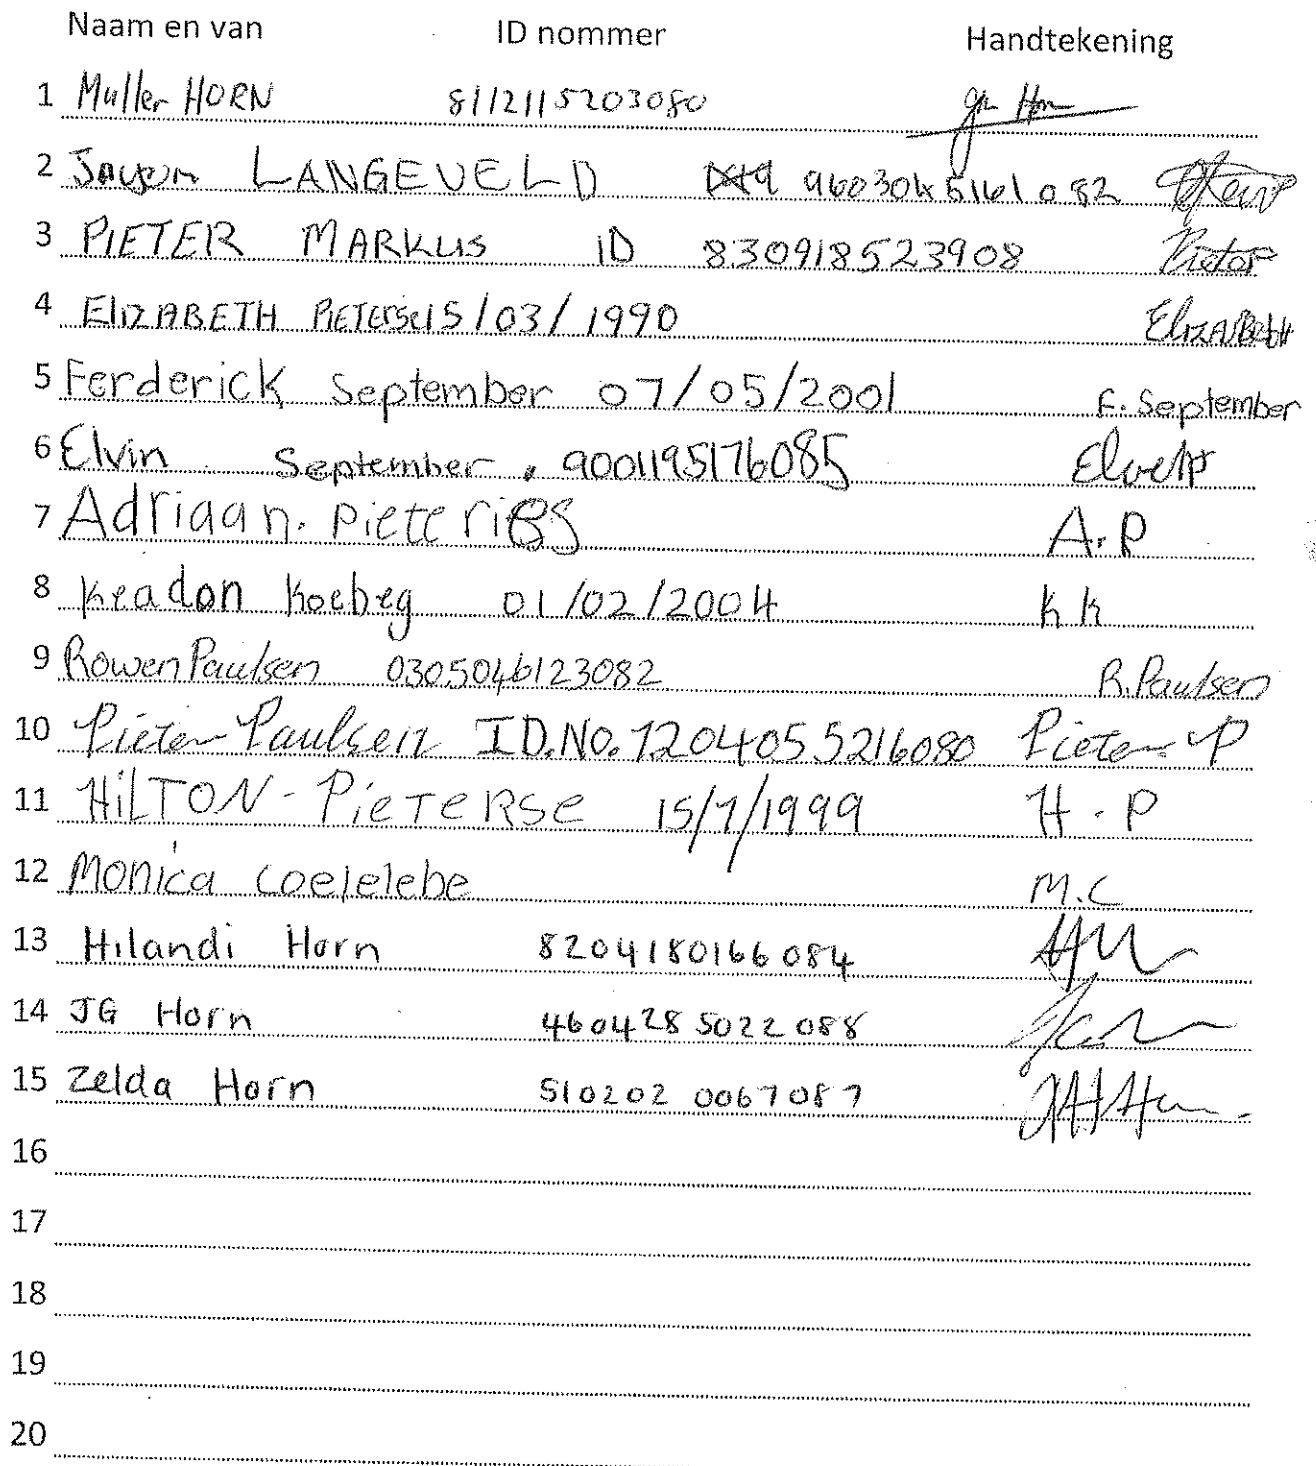 Naam en van ID nommer Handtekening
1 Muller HORN 8112115203080
2 LANGEVELD 9603045161082
3 PIETER MARKUS ID 830918523908 Pieter
4 ElIZABETH PIETERSE 15/03/1990 ElIZABEtH
5 Ferderick September 07/05/2001 F. September
6 Elvin September. 9001195176085
7 Adriaan. Pieteries A.P
8 Keadon Koebeg 01/02/2004 K K
9 Rowen Paulsen 0305046123082 R.Paulsen
10 Pieter Paulsen ID.NO.7204055216080 Pieter P
11 HiLTON - PieTeRSe 15/7/1999 H.P
12 Monica Coejelebe M.C
13 Hilandi Horn 8204180166084
14 JG Horn 460428 5022 088
15 Zelda Horn 510202 0067087
16
17
18
19
20